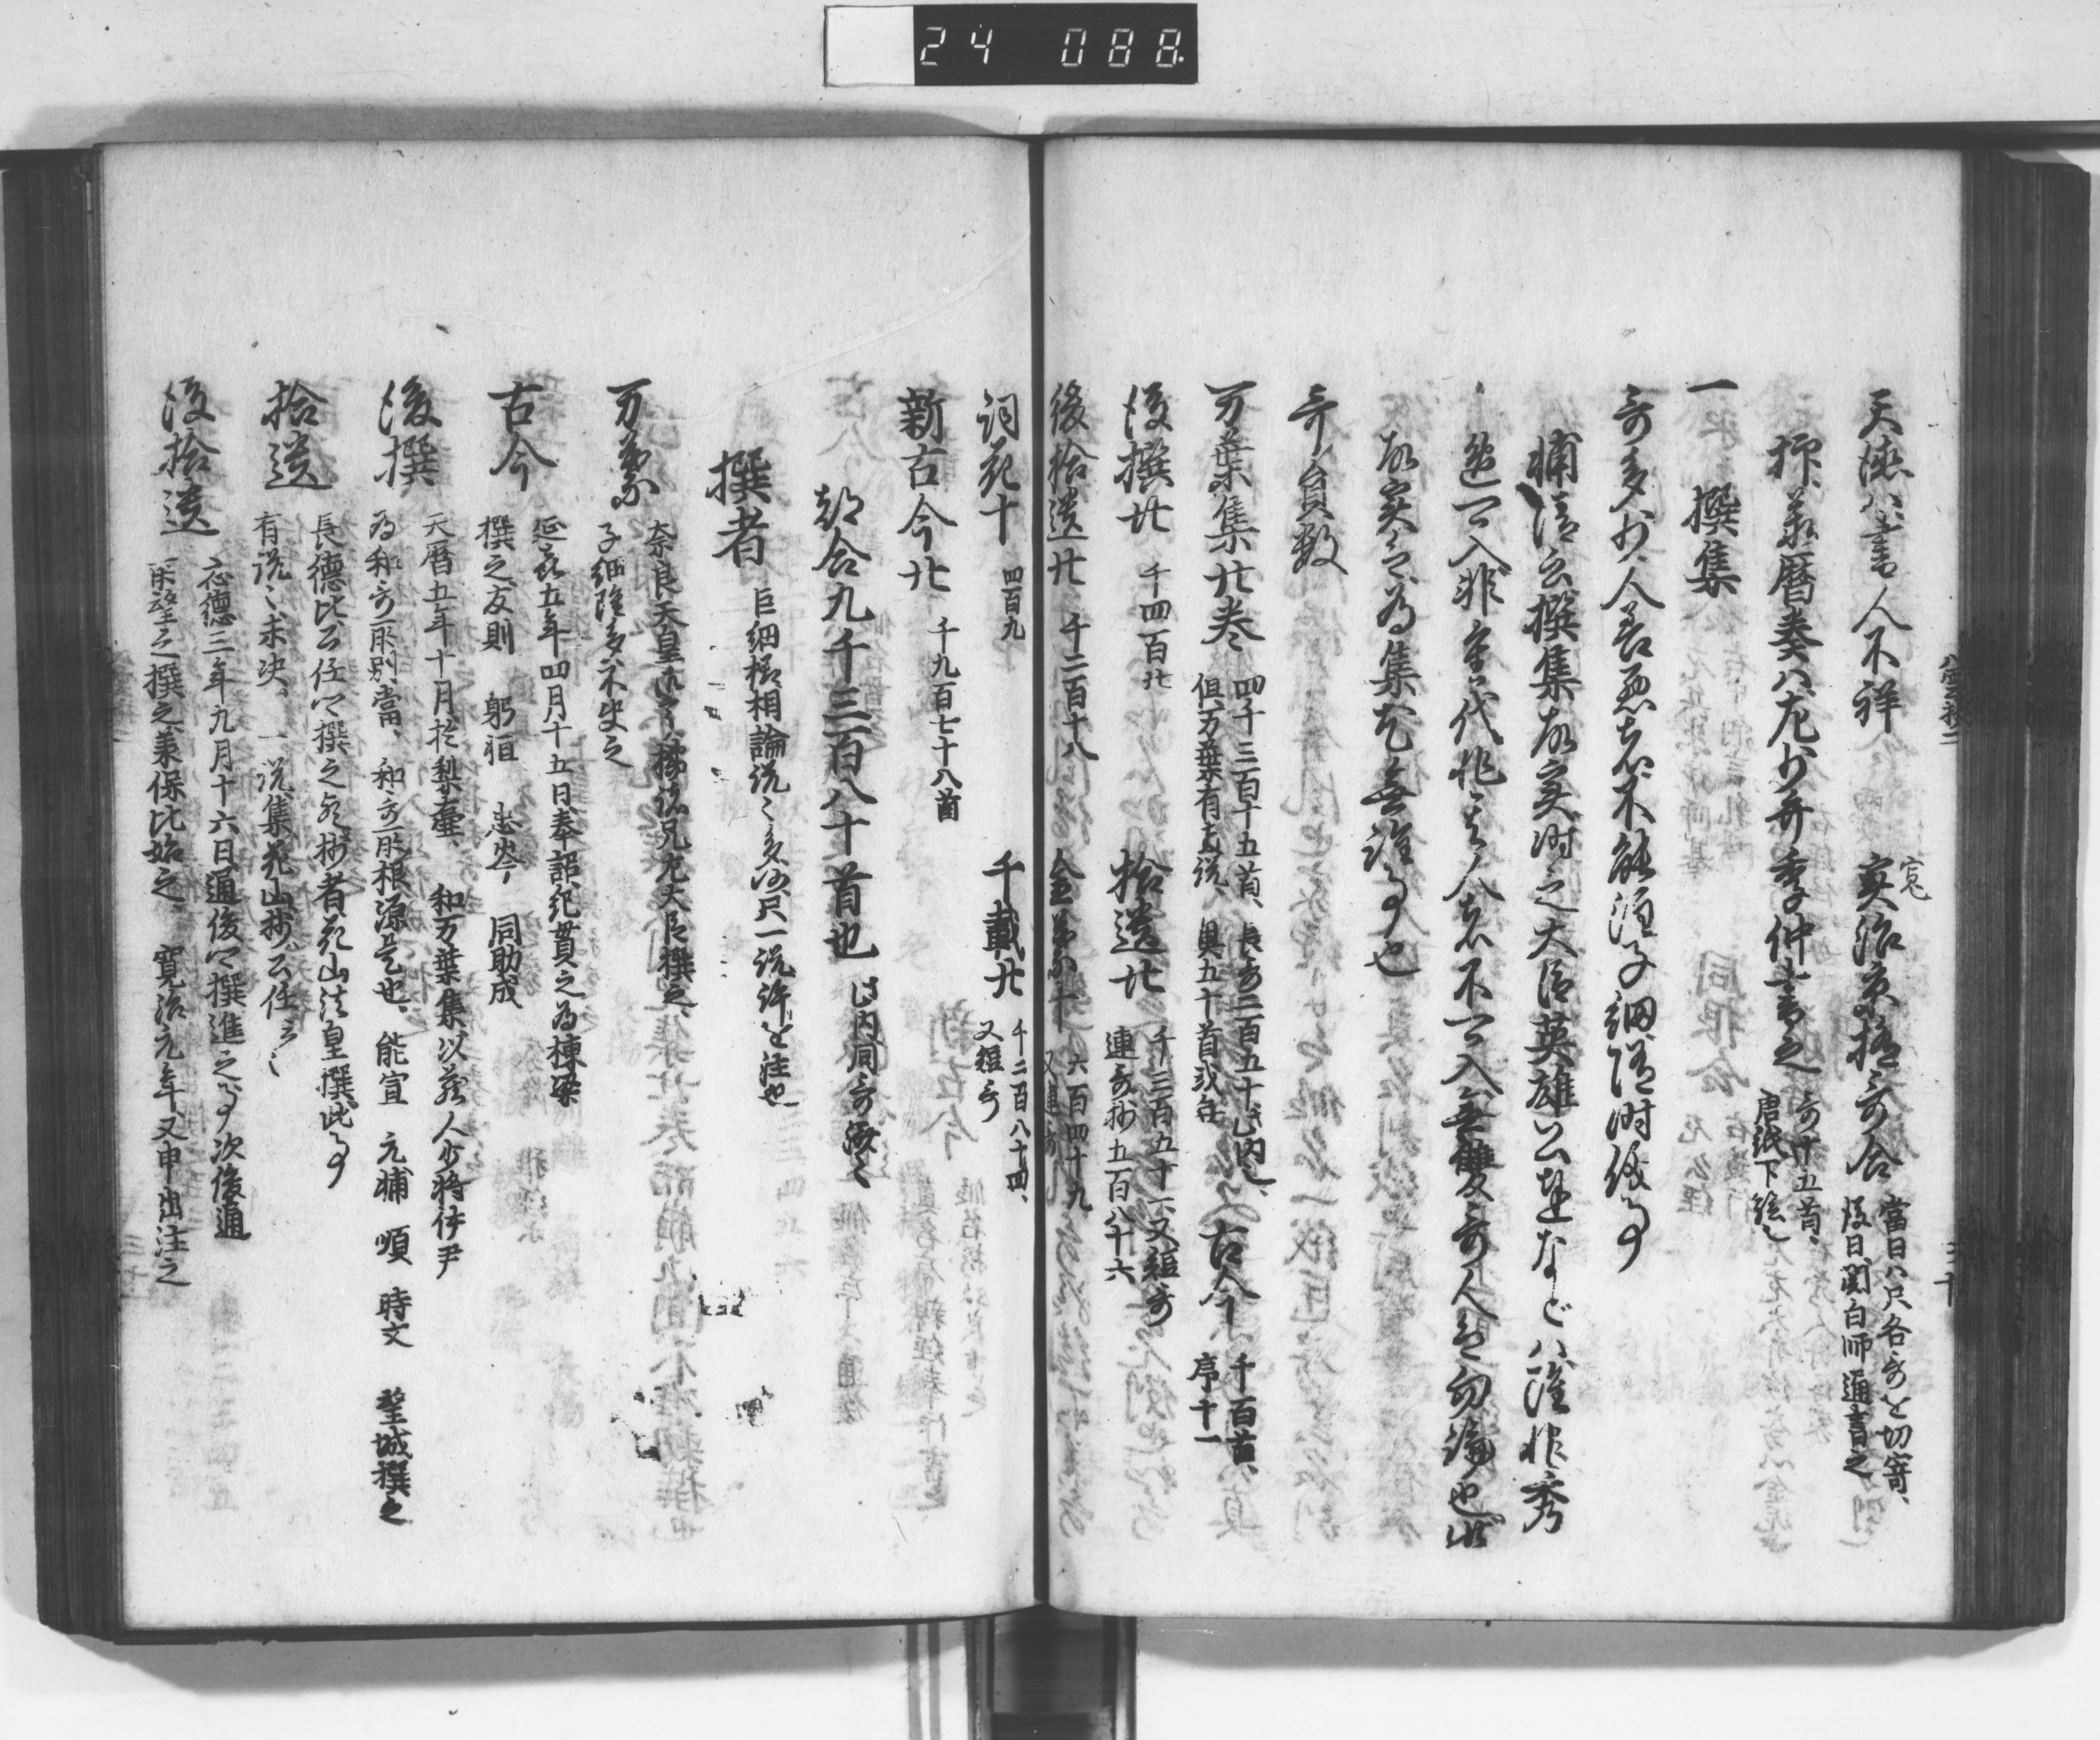 24 088.
八雲抄二
三十
天徳ハ書人不詳
寛治京極哥合
寛
當日ハ只各哥を切寄、
後日関白師通書之
抑承暦奏ハ左少弁季仲書之
哥十五首、
唐紙下絵也
一 撰集
哥多少人善悪者不能注子細隨時儀事
補清云撰集故実時之大臣英雄公達などハ雖非秀
逸可入非重代非其人者不可入無雙哥人者勿論也此
故実之為集尤無詮事也
哥員数
万葉集廿巻
四千三百十五首、長哥二百五十此内也、
但万葉有古説 奥五十首或無
古今
千百首、真
序十一
後撰廿 千四百廿
拾遺廿
千三百五十一 又短哥
連哥抄五百八十六
後拾遺廿 千二百十八
金葉十
六百四十九
又連哥
詞花十 四百九
千載廿
千二百八十四、
又短哥
新古今廿 千九百七十八首
都合九千三百八十首也 此内同哥
撰者
巨細極相論説〻多候只一説許を注也
万葉
奈良天皇御宇橘諸兄左大臣撰之
子細雖多不史之
古今
延喜五年四月十五日奉詔紀貫之為棟梁
撰之友則 躬恒 忠岑 同助成
後撰
天暦五年十月於梨壷、 和万葉集以蔵人少将伊尹
為和哥所別當、 和哥所根源是也、 能宣 元輔 順 時文 望城撰之
拾遺
長徳比公任卿撰之名抄者花山法皇撰此事
有説〻未決、 一説集花山抄公任云〻
後拾遺
応徳三年九月十六日通俊卿撰進之事次後通
所望之撰之承保比始之、 寛治元年又申出注之